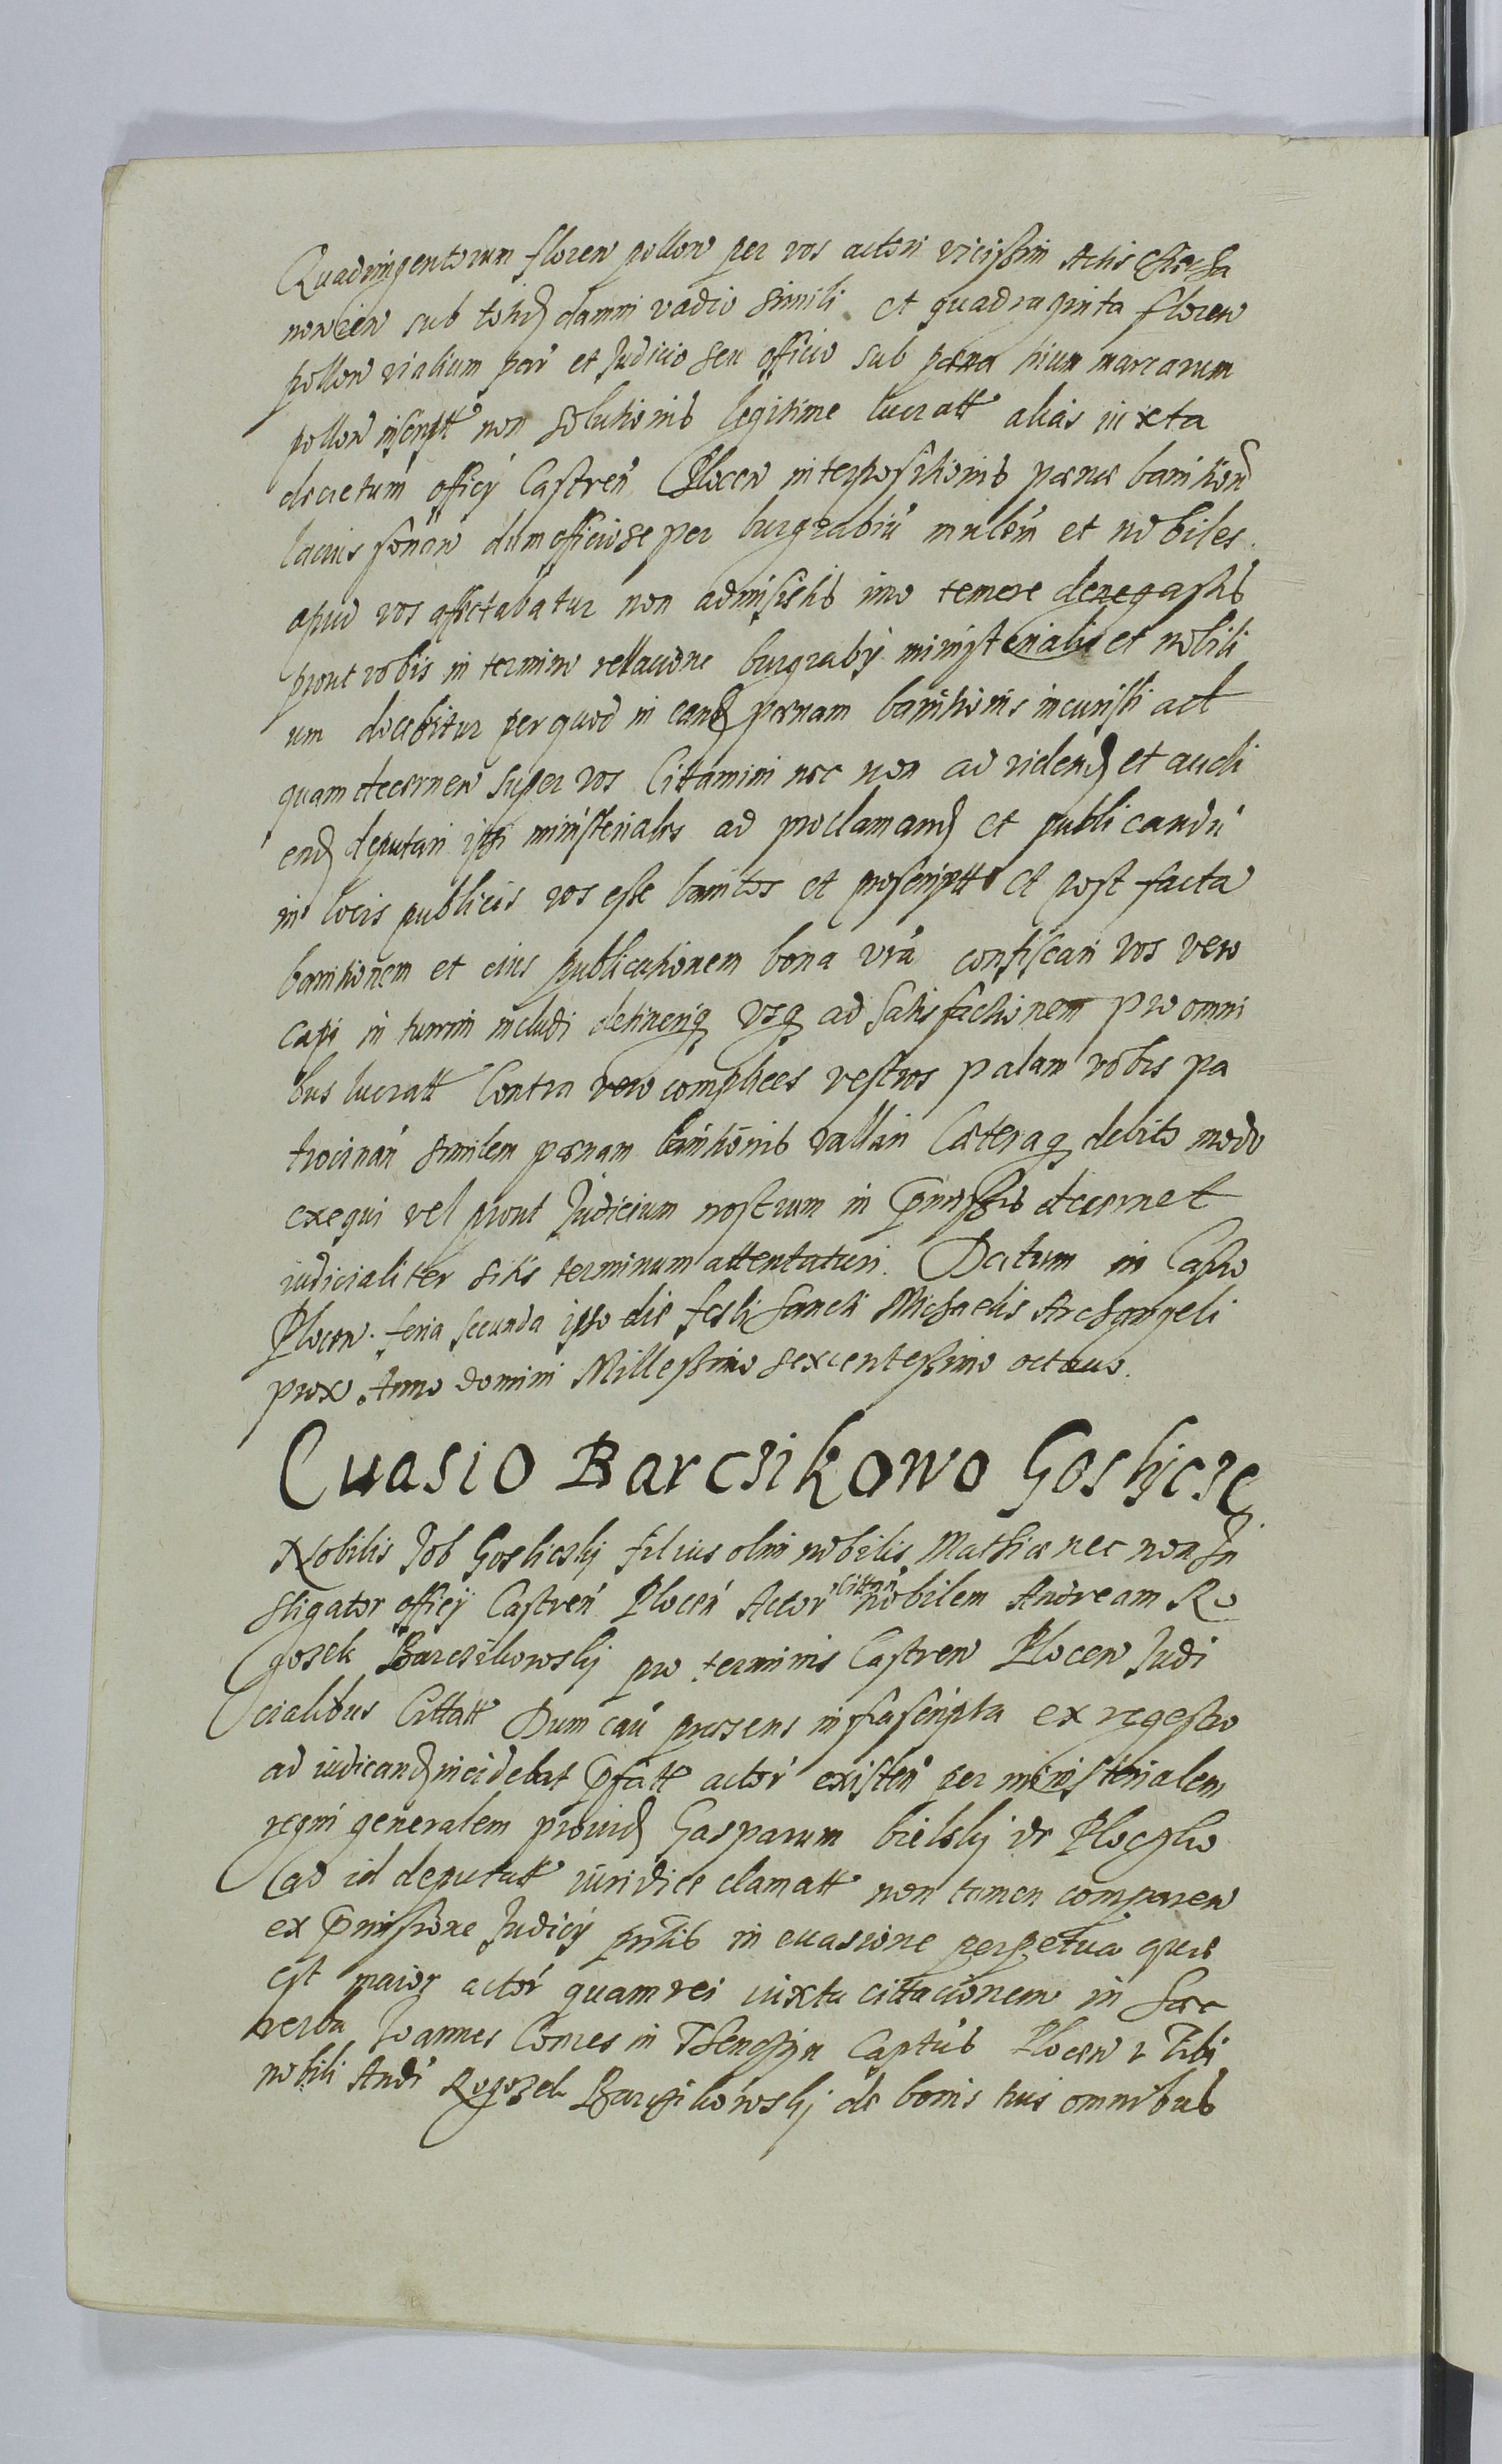 Quadringentorum floren pollon per vos actori vicissim Actis
sub totid damni vadio simili et quadraginta floren
pollon vialium par et Judicio seu officio sub pœna trium marcarum
pollon inscriptt non solutionis legitime lucratt alias iuxta
decretum officy Castren Plocen interpositionis pœnæ banition
latius sonan dum officiose per burgrabiu et nobiles
apud vos affectabatur non admisistis imo temere denegastis
prout vobis in termino rellacione burgraby ministerialis et nobili
um docebitur per quod in eand pœnam banitionis incuristi ad
quam decernen super vos Cittamini nec non ad vidend et audi
end deputari ministeriales ad proclamand et publicandu
in locis publicis vos esse banitos et proscriptt et post facta
banitionem et eius publicationem bona vra confiscari vos vero
capi in turrim includi detineriq usq ad satisfactionem pro omni
bus lucratt Contra vero complices vestros palam vobis pa
trocinan similem pœnam banitionis vallari Cæteraq debito modo
exequi vel prout Judicium nostrum in pmissis decernet
iudicialiter sitis terminum attentaturi. Datum in Castro
Plocen. feria secunda ipso die festi Sancti Michaelis Archangeli
prox. Anno domini Millessimo sexcentessimo octauo.
Euasio Barczikowo Goslicze
Nobilis Job Goslicskj filius olim nobilis Mathiæ nec non In
stigator officy Castren Plocen Actor cittan nobilem Andream Ro
gosek Barczikowskj pro terminis Castren Plocen Judi
cialibus Cittatt Dum cau præsens infrascripta ex regestro
ad iudicand incidebat pfatt actor existen per ministerialem
regni generalem prouid Gasparum bielskj de Ploczko
ad id deputatt iuridice clamatt non tamen comparen
ex pmissione Judicy pntis in euasione perpetua quæ
est maior actor quam rei iuxta cittacionem in hæc
verba Joannes Comes in Tenczyn Captus Plocen z Tibi
nobili Andr Rogozek Barczikowskj de bonis tuis omnibus